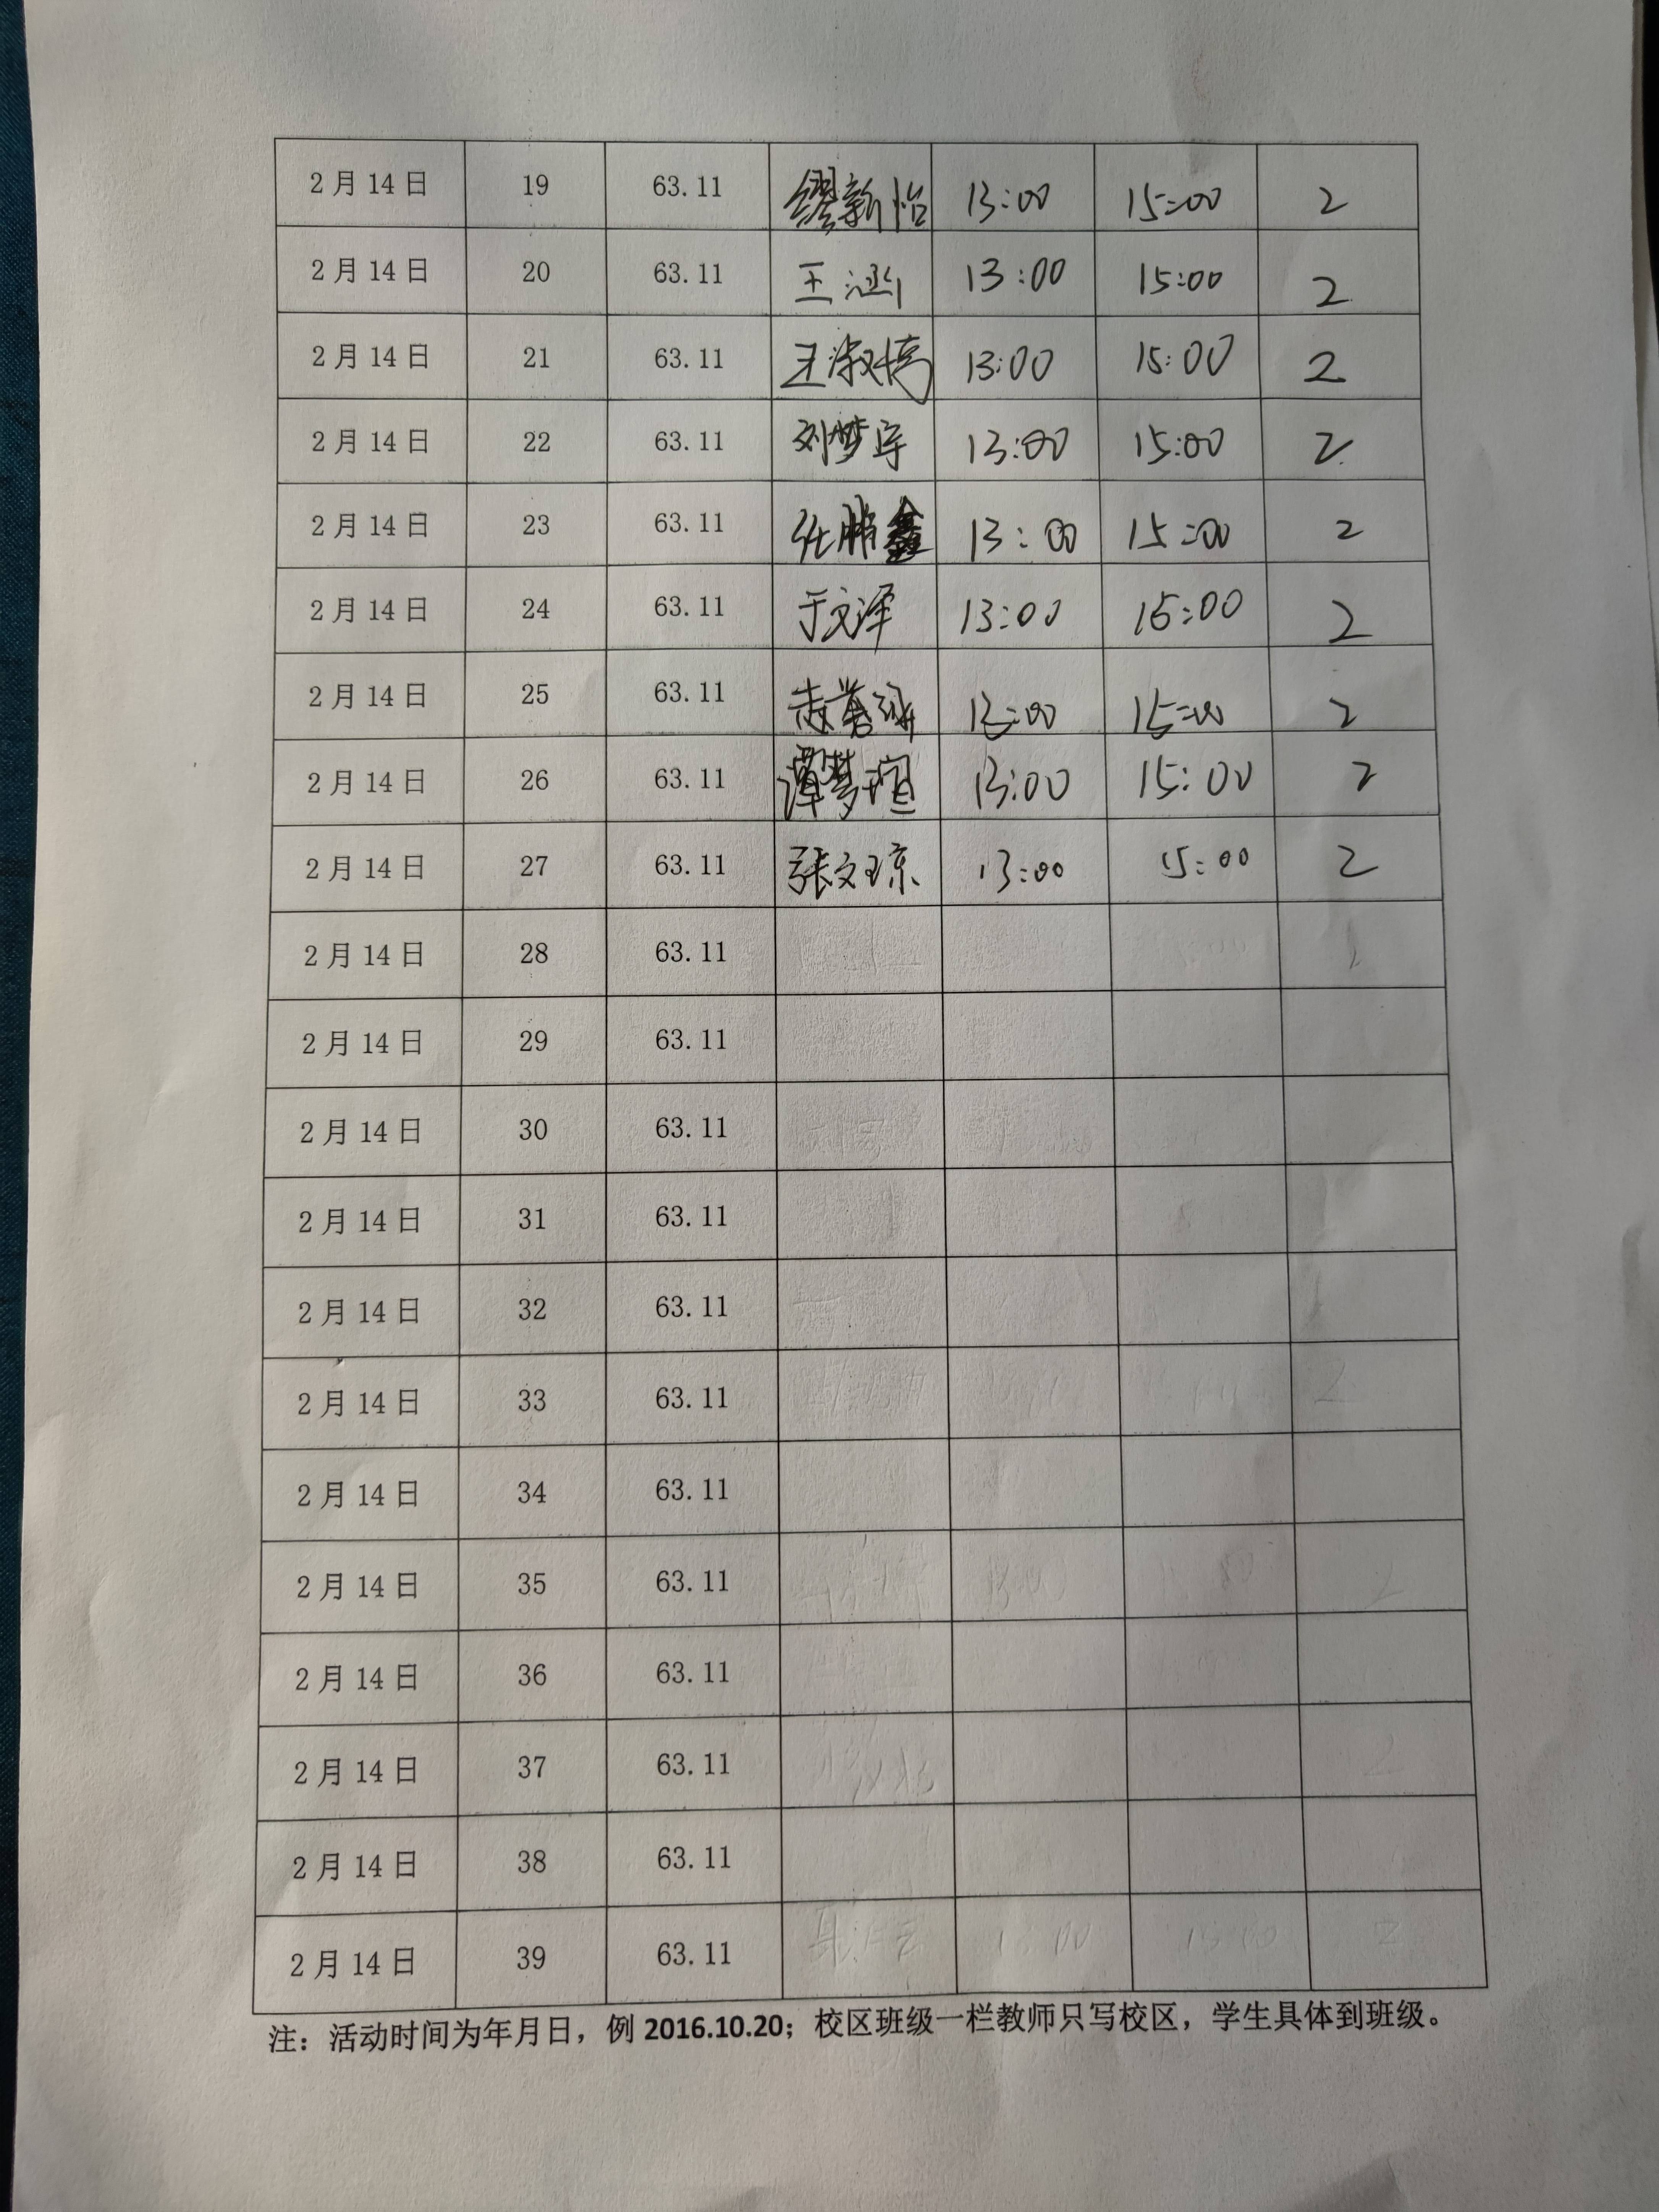 2月14日 19 63.11 缪新怡 13:00 15:00 2
2月14日 20 63.11 王涵 13:00 15:00 2
2月14日 21 63.11 王淑婷 13:00 15:00 2
2月14日 22 63.11 刘梦宇 13:00 15:00 2
2月14日 23 63.11 任鹏鑫 13:00 15:00 2
2月14日 24 63.11 于文泽 13:00 15:00 2
2月14日 25 63.11 13:00 15:00 2
2月14日 26 63.11 谭梦瑄 13:00 15:00 2
2月14日 27 63.11 张文琼 13:00 15:00 2
2月14日 28 63.11
2月14日 29 63.11
2月14日 30 63.11
2月14日 31 63.11
2月14日 32 63.11
2月14日 33 63.11
2月14日 34 63.11
2月14日 35 63.11
2月14日 36 63.11
2月14日 37 63.11
2月14日 38 63.11
2月14日 39 63.11
注：活动时间为年月日，例 2016.10.20；校区班级一栏教师只写校区，学生具体到班级。